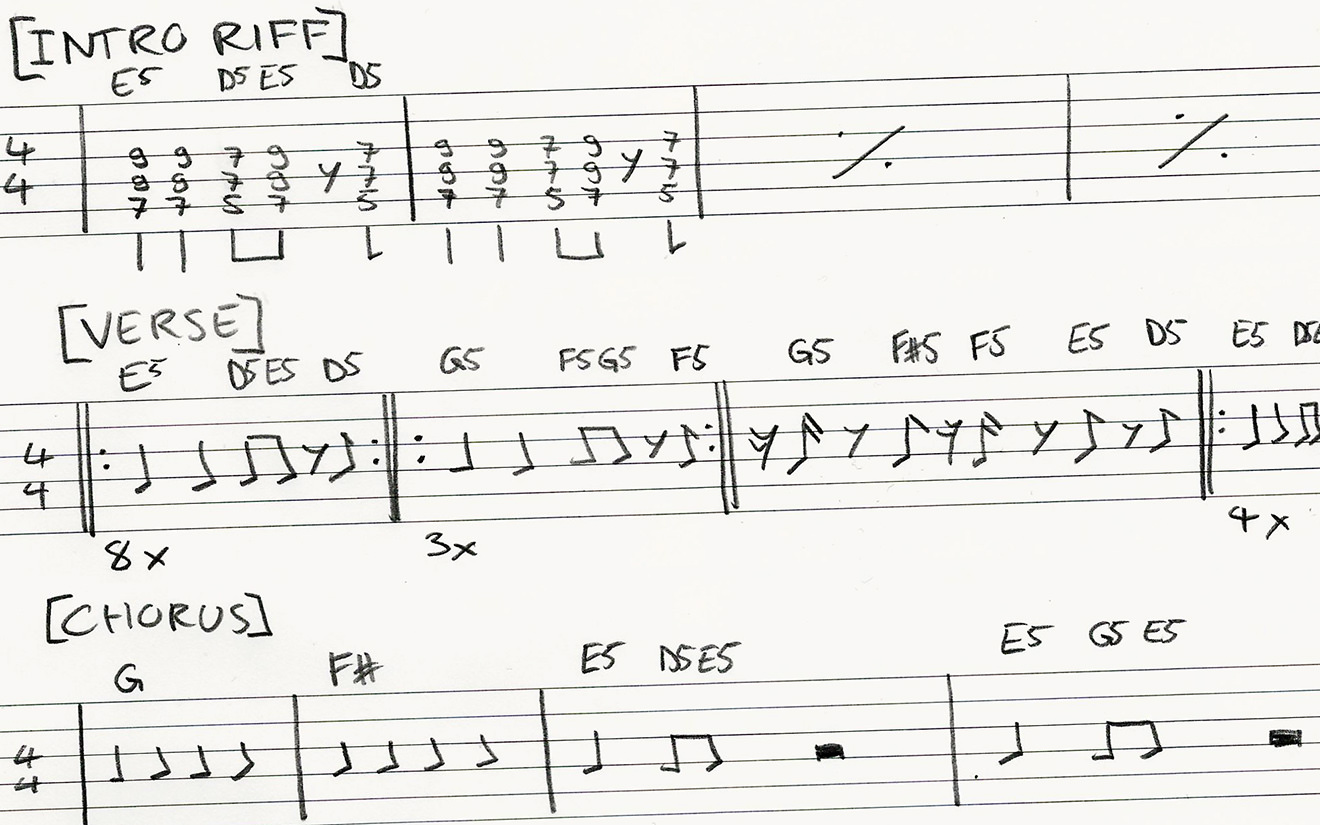 [INTRO RIFF]
E5 D5 E5 D5
4 9 9 7 9 7 9 9 7 9 7
4 9 9 7 9 7 9 9 7 9 7
7 7 5 7 5 7 7 5 7 5
[VERSE]
E5 D5 E5 D5 G5 F5 G5 F5 G5 F#5 F5 E5 D5 E5
4
4
8x 3x 4x
[CHORUS]
G F# E5 D5 E5 E5 G5 E5
4
4